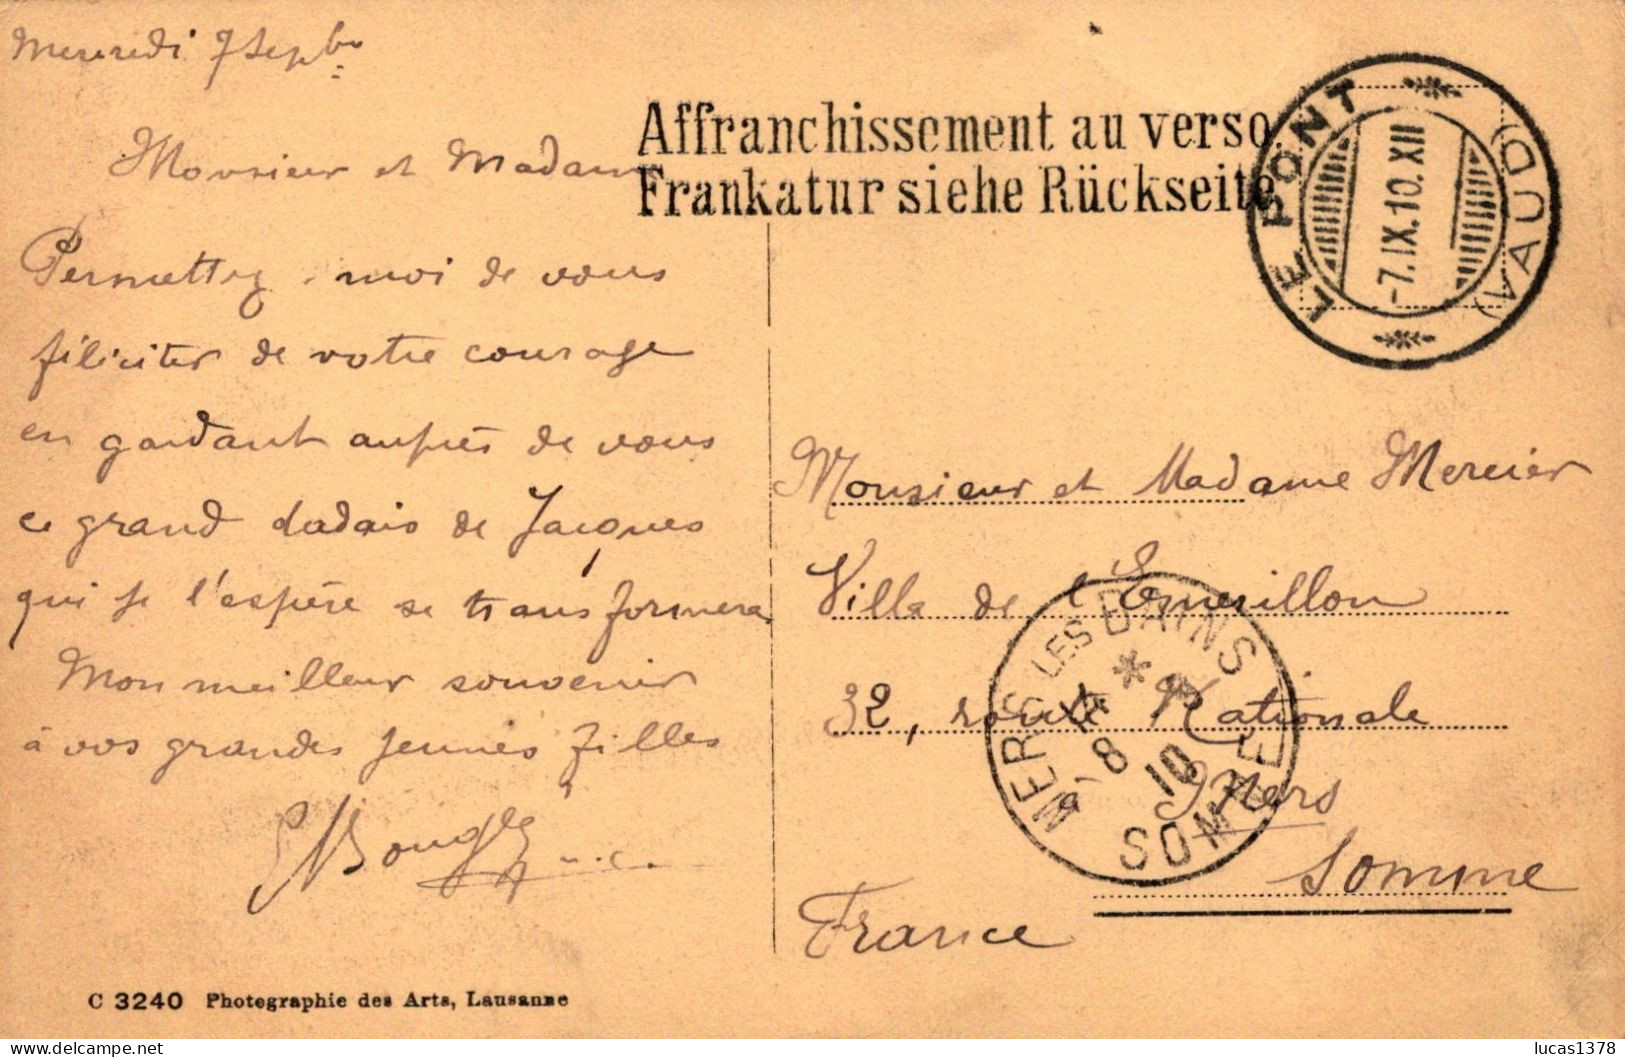 Mercredi 7 Septbre
Monsieur et Madame
Permettez-moi de vous
féliciter de votre courage
en gardant auprès de vous
ce grand dadais de Jacques
qui je l'espère se transformera
Mon meilleur souvenir
à vos grandes jeunes filles
C 3240 Photographie des Arts, Lausanne
Affranchissement au verso.
Frankatur siehe Rückseite
LE PONT
(VAUD)
-7.IX.10.XII
Monsieur et Madame Mercier
Villa de l'Emerillon
32, route Nationale
Mers
Somme
France
MERS LES BAINS
8
10
SOMME
lucas1378